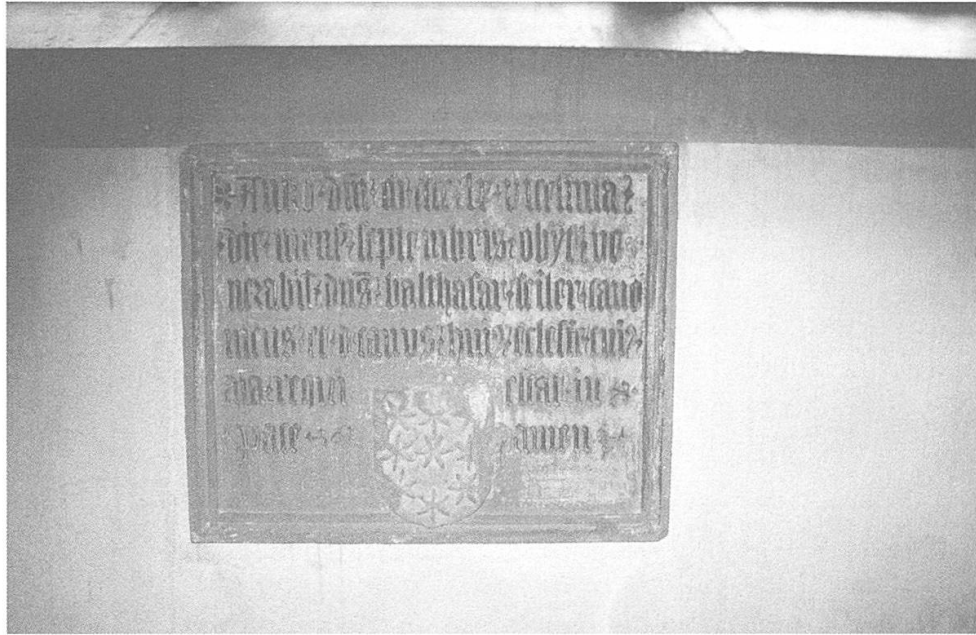 Anno · dni · m · cccc · lx · vicesima
die · mens · septembris · obyt · ve
nerabil · dns · balthasar · seiler · cano
nicus · et · decanus · hui9 · ecclesie · cui9
aia · requi escat · in
pace amen